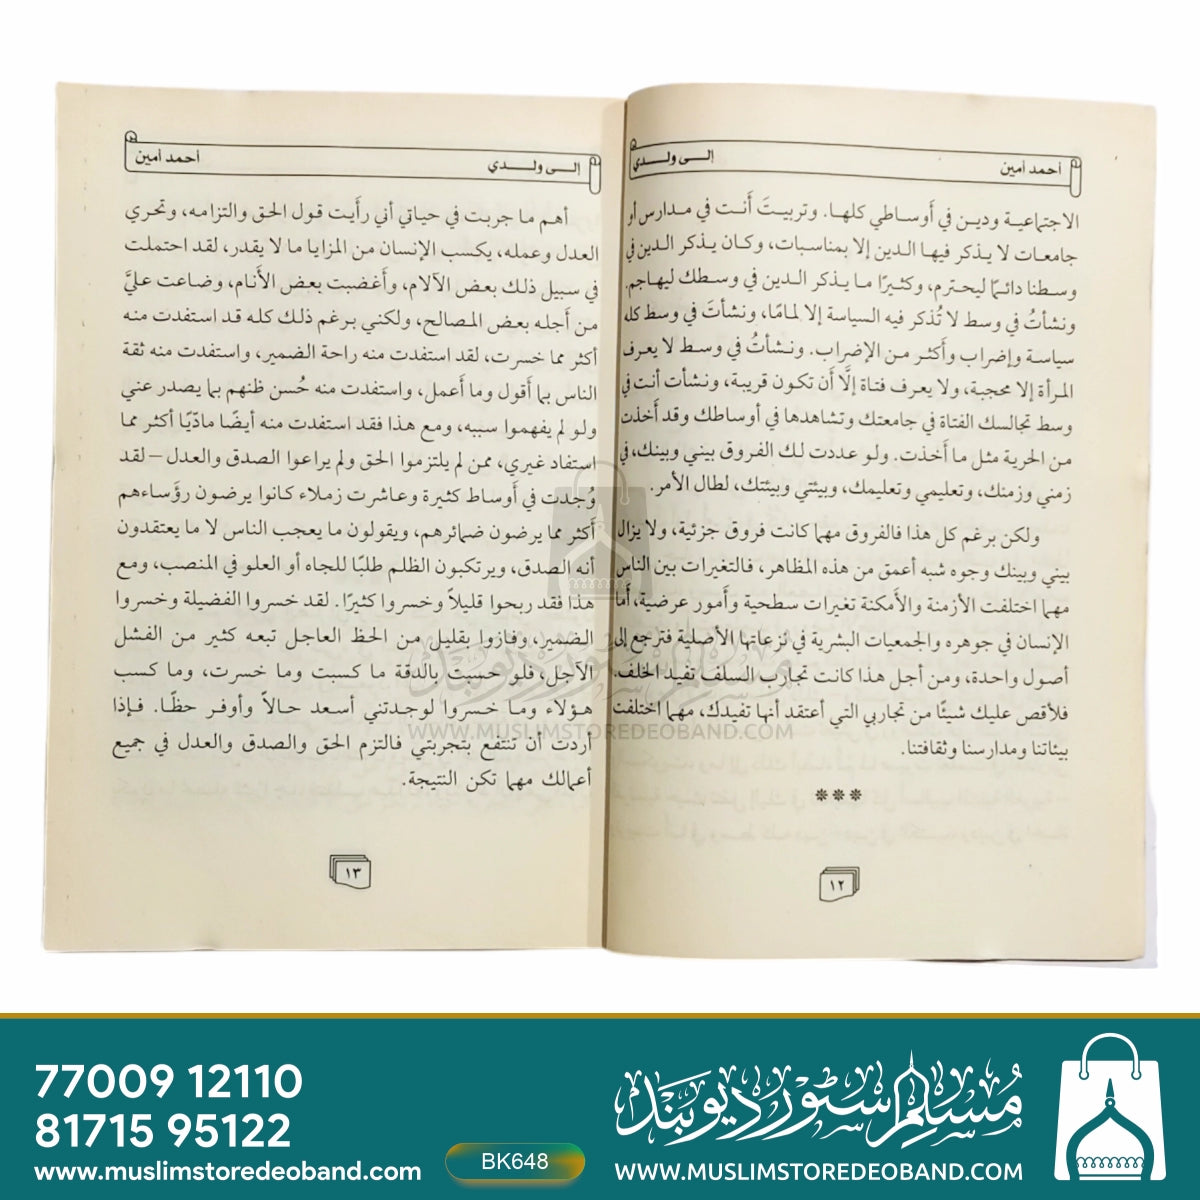 أحمد أمين
إلـــى ولـــــدي
الاجتماعيـة وديـن في أَوسـاطي كلهـا. وتربيـتَ أَنـت في مـدارس أو
جامعـات لا يـذكر فيهـا الـدين إلا بمناسـبات، وكـان يـذكر الـدين في
وسـطنا دائـمًا ليحـترم، وكثـيرًا مـا يـذكر الـدين في وسـطك ليهـاجم.
ونشأتُ في وسط لا تُذكر فيه السياسة إلا لمامًا، ونشأتَ في وسط كله
سياسـة وإضراب وأَكثـر مـن الإضراب. ونشـأتُ في وسـط لا يعـرف
المرأة إلا محجبة، ولا يعـرف فتـاة إلَّا أَن تكـون قريبـة، ونشأت أنت في
وسط تجالسك الفتاة في جامعتك وتشاهدها في أوساطك وقد أَخذت
من الحرية مثل ما أَخذت. ولو عددت لك الفروق بيني وبينك، في
زمني وزمنك، وتعليمي وتعليمك، وبيئتي وبيئتك، لطال الأمر.
ولكن برغم كل هذا فالفروق مهما كانت فروق جزئية، ولا يزال
بيني وبينك وجوه شبه أعمق من هذه المظاهر، فالتغيرات بين الناس
مهما اختلفت الأزمنة والأمكنة تغيرات سطحية وأمور عرضية، أَما
الإنسان في جوهره والجمعيات البشرية في نزعاتها الأصلية فترجع إلى
أصول واحدة، ومن أجل هذا كانت تجارب السلف تفيد الخلف.
فلأقص عليك شيئًا من تجاربي التي أعتقد أنها تفيدك، مهما اختلفت
بيئاتنا ومدارسنا وثقافتنا.
***
١٢
إلـــى ولـــــدي
أحمد أمين
أهم ما جربت في حياتي أني رأَيت قول الحق والتزامه، وتحري
العدل وعمله، يكسب الإنسان من المزايا ما لا يقدر، لقد احتملت
في سبيل ذلك بعض الآلام، وأَغضبت بعض الأَنام، وضاعت عليَّ
من أَجله بعض المصالح، ولكني برغم ذلك كله قد استفدت منه
أكثر مما خسرت، لقد استفدت منه راحة الضمير، واستفدت منه ثقة
الناس بما أَقول وما أَعمل، واستفدت منه حُسن ظنهم بما يصدر عني
ولو لم يفهموا سببه، ومع هذا فقد استفدت منه أيضًا ماديًّا أكثر مما
استفاد غيري، ممن لم يلتزموا الحق ولم يراعوا الصدق والعدل – لقد
وُجدت في أَوساط كثيرة وعاشرت زملاء كانوا يرضون رؤَساءهم
أَكثر مما يرضون ضمائرهم، ويقولون ما يعجب الناس لا ما يعتقدون
أنه الصدق، ويرتكبون الظلم طلبًا للجاه أو العلو في المنصب، ومع
هذا فقد ربحوا قليلاً وخسروا كثيرًا. لقد خسروا الفضيلة وخسروا
الضمير، وفازوا بقليل من الحظ العاجل تبعه كثير من الفشل
الآجل، فلو حسبت بالدقة ما كسبت وما خسرت، وما كسب
هـؤلاء ومـا خسـروا لوجـدتني أسـعد حـالاً وأوفـر حظًـا. فـإذا
أردت أن تنتفع بتجربتي فالتزم الحق والصدق والعدل في جميع
أعمالك مهما تكن النتيجة.
١٣
WWW.MUSLIMSTOREDEOBAND.COM
77009 12110
81715 95122
www.muslimstoredeoband.com
BK648
مسلم سٹور دیوبند
WWW.MUSLIMSTOREDEOBAND.COM